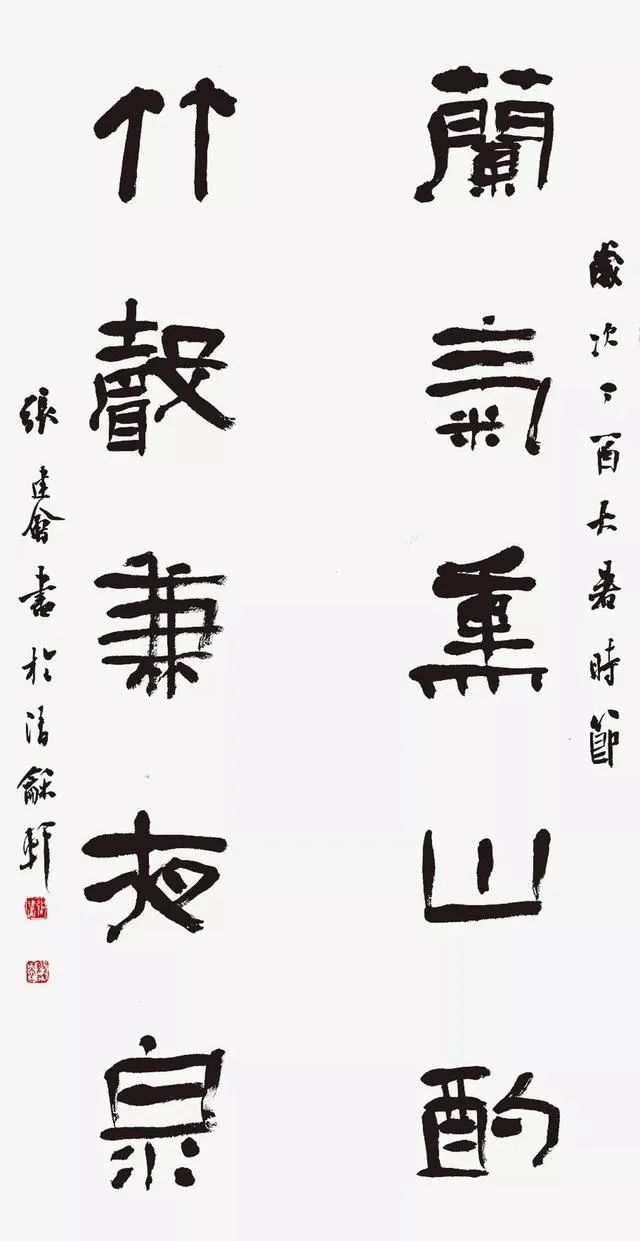 歲次丁酉大暑時節
蘭氣熏山酌
竹聲兼夜泉
張建會書於清龢軒